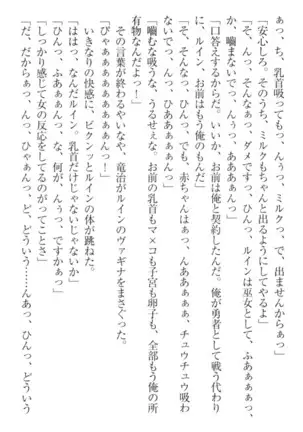 あっ、ち、乳首吸ってもっ、んぅっ、ミルクっ、で、出ませんからぁっ」
「安心しろ。そのうち、ミルクもちゃんと出るようにしてやるよ」
「そ、んっ、そんなぁっ、ダメですっ、ひんっ、ルインは巫女として、ふあぁぁぁっ、か、噛まないでっ、んぅぅっ、あああぁんっ」
「口答えするからだ。いいか、お前は俺と契約したんだ。俺が勇者として戦う代わりに、ルイン、お前はもう俺のもんだ」
「そ、そんなっ、ひんっ、でも、赤ちゃんはぁっ、んぅぅっ、チュウチュウ吸わないで、んっ、ひああぁぁんっ」
「噛むな吸うな、うるせぇな。お前の乳首もマ×コも子宮も卵子も、全部もう俺の所有物なんだよっ！」
その言葉が終わるやいなや、竜治がルインのヴァギナをまさぐった。
「ぴゃぁぁぁぁぁぁんっ！」
いきなりの快感に、ビクンッとルインの体が跳ねた。
「ははっ、なんだルイン。乳首だけじゃないじゃないか」
「ひんっ、ふあぁぁんっ、な、何が、んぅっ、ですかぁっ」
「しっかり感じて女の反応をしてるのがってことさ」
「だ、だからぁっ、んっ、ひゃぁんっ、ど、どういう……んあっ、ひんっ、どういう